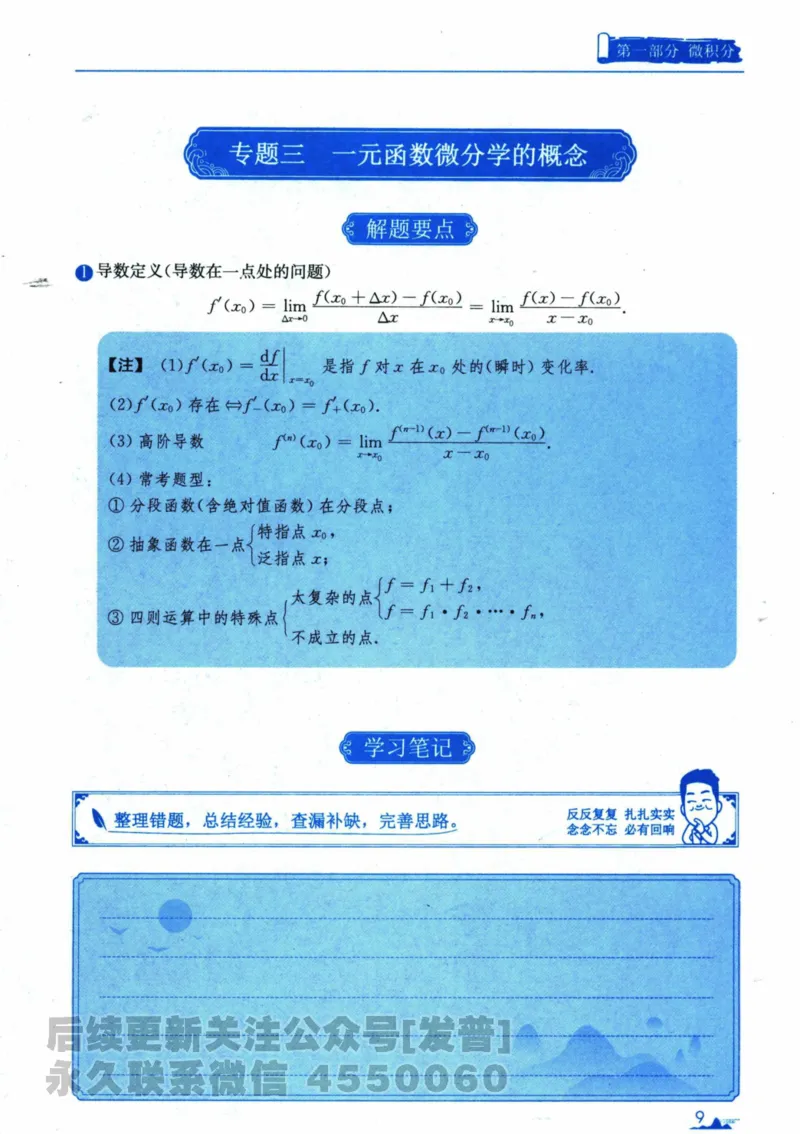 第一部分 微积分
专题三 一元函数微分学的概念
解题要点
❶ 导数定义(导数在一点处的问题)
f′(x₀) = lim_{Δx→0} (f(x₀+Δx)−f(x₀))/Δx = lim_{x→x₀} (f(x)−f(x₀))/(x−x₀).
【注】 (1)f′(x₀) = df/dx|_{x=x₀} 是指 f 对 x 在 x₀ 处的(瞬时)变化率.
(2)f′(x₀) 存在 ⇔ f′₋(x₀) = f′₊(x₀).
(3) 高阶导数 f⁽ⁿ⁾(x₀) = lim_{x→x₀} (f⁽ⁿ⁻¹⁾(x)−f⁽ⁿ⁻¹⁾(x₀))/(x−x₀).
(4) 常考题型:
① 分段函数(含绝对值函数)在分段点;
② 抽象函数在一点{特指点 x₀,
泛指点 x;
③ 四则运算中的特殊点{太复杂的点{f = f₁ + f₂,
f = f₁ · f₂ · ⋯ · fₙ,
不成立的点.
学习笔记
整理错题，总结经验，查漏补缺，完善思路。
反反复复 扎扎实实
念念不忘 必有回响
后续更新关注公众号[发普]
永久联系微信 4550060
9